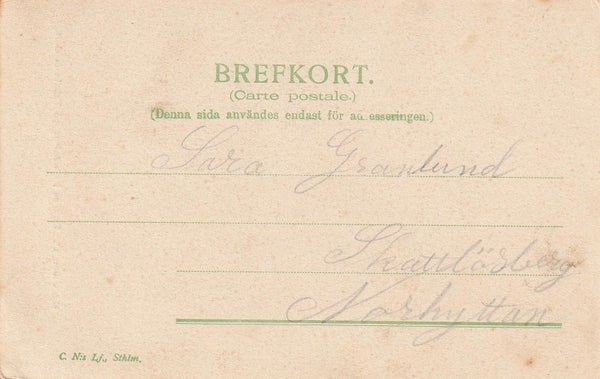 BREFKORT.
(Carte postale.)
(Denna sida användes endast för adresseringen.)
Sara Granlund
Skattlösberg
Norhyttan
C. N:s Lj., Sthlm.